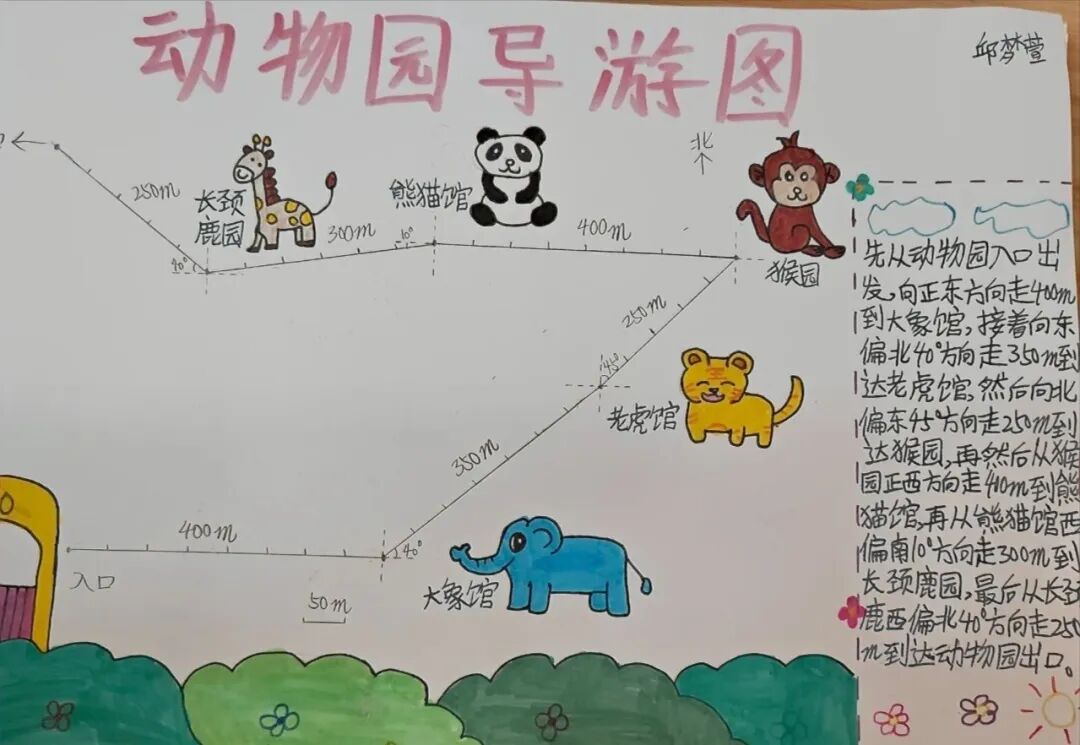 动物园导游图
邱梦萱
北
250m
长颈
鹿园
熊猫馆
300m
10°
400m
猴园
40°
250m
45°
老虎馆
350m
400m
40°
大象馆
入口
50m
先从动物园入口出
发,向正东方向走400m
到大象馆,接着向东
偏北40°方向走350m到
达老虎馆,然后向北
偏东45°方向走250m到
达猴园,再然后从猴
园正西方向走400m到熊
猫馆,再从熊猫馆西
偏南10°方向走300m到
长颈鹿园,最后从长颈
鹿西偏北40°方向走250
m到达动物园出口。